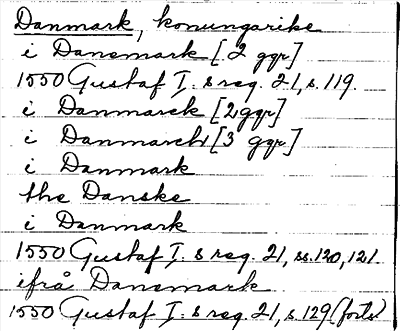 Danmark, konungarike
i Danemark [2 ggr]
1550 Gustaf I:s reg. 21, s. 119.
i Danmarck [2 ggr]
i Danmarch [3 ggr]
i Danmark
the Danske
i Danmark
1550 Gustaf I:s reg. 21, ss. 120, 121
ifrå Danemark
1550 Gustaf I:s reg. 21, s. 129 (forts.)